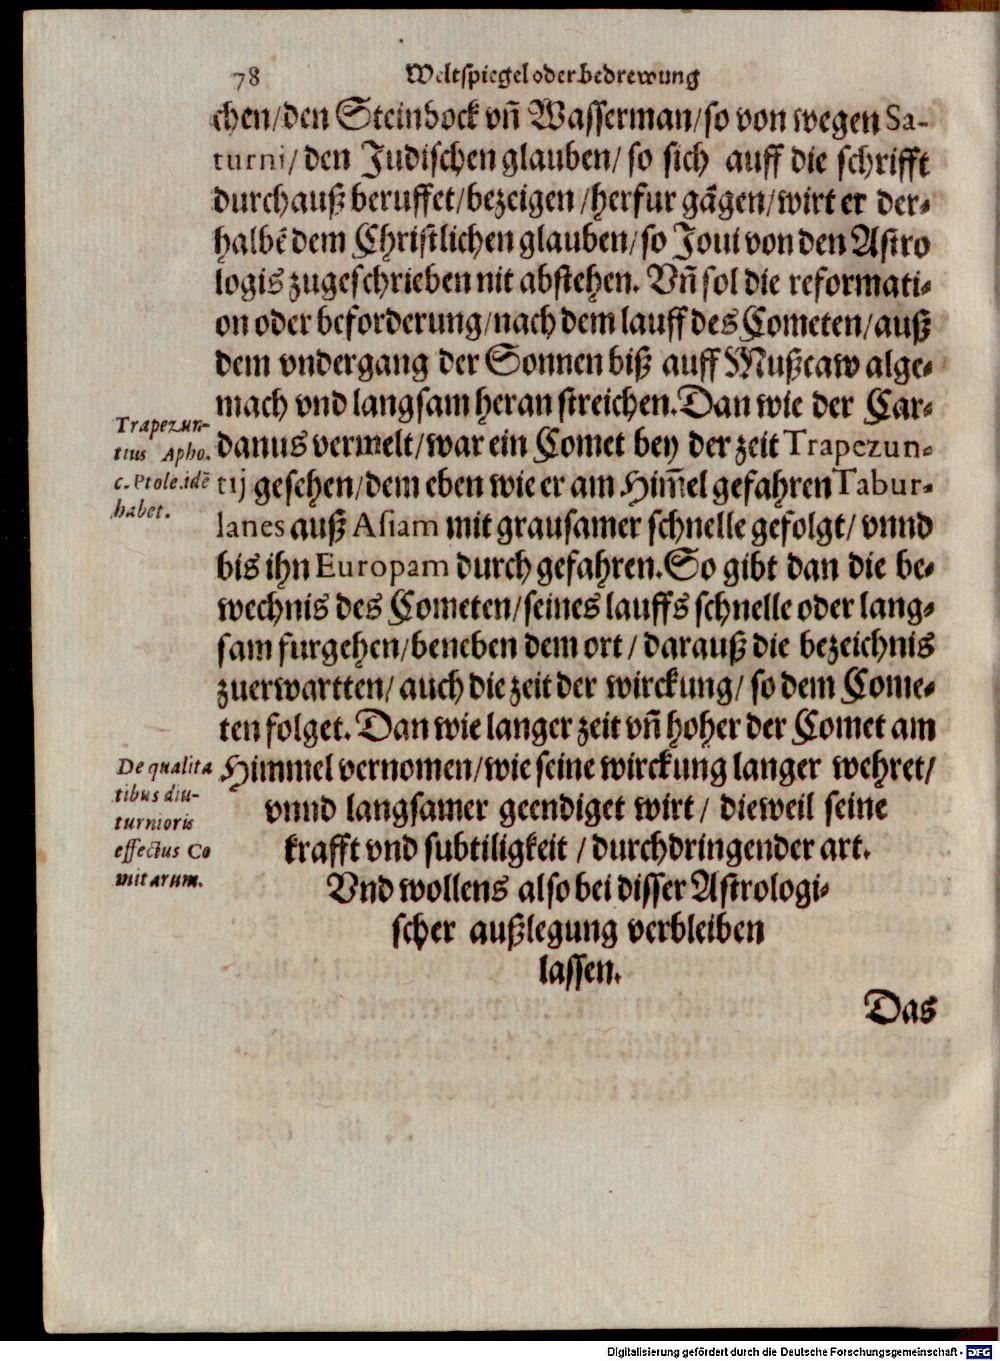 78 Weltspiegel oder bedrewung
chen/den Steinbock vñ Wasserman/so von wegen Sa-
turni/ den Judischen glauben/ so sich auff die schrifft
durchauß beruffet/bezeigen/herfur gãgen/wirt er der-
halbẽ dem Christlichen glauben/so Joui von den Astro
logis zugeschrieben nit abstehen. Vñ sol die reformati-
on oder beforderung/nach dem lauff des Cometen/auß
dem vndergang der Sonnen biß auff Mußcaw alge-
mach vnd langsam heran streichen. Dan wie der Car-
danus vermelt/war ein Comet bey der zeit Trapezun-
tij gesehen/dem eben wie er am Him̃el gefahren Tabur-
lanes auß Asiam mit grausamer schnelle gefolgt/ vnnd
bis ihn Europam durch gefahren. So gibt dan die be-
wechnis des Cometen/seines lauffs schnelle oder lang-
sam furgehen/beneben dem ort/ darauß die bezeichnis
zuerwartten/ auch die zeit der wirckung/ so dem Come-
ten folget. Dan wie langer zeit vñ hoher der Comet am
Himmel vernomen/wie seine wirckung langer wehret/
vnnd langsamer geendiget wirt/ dieweil seine
krafft vnd subtiligkeit/durchdringender art.
Vnd wollens also bei disser Astrologi-
scher außlegung verbleiben
lassen.
Das
Trapezun-
tius Apho.
c. Ptole.idẽ
habet.
De qualita
tibus diu-
turnioris
effectus Co
mitarum.
Digitalisierung gefördert durch die Deutsche Forschungsgemeinschaft - DFG